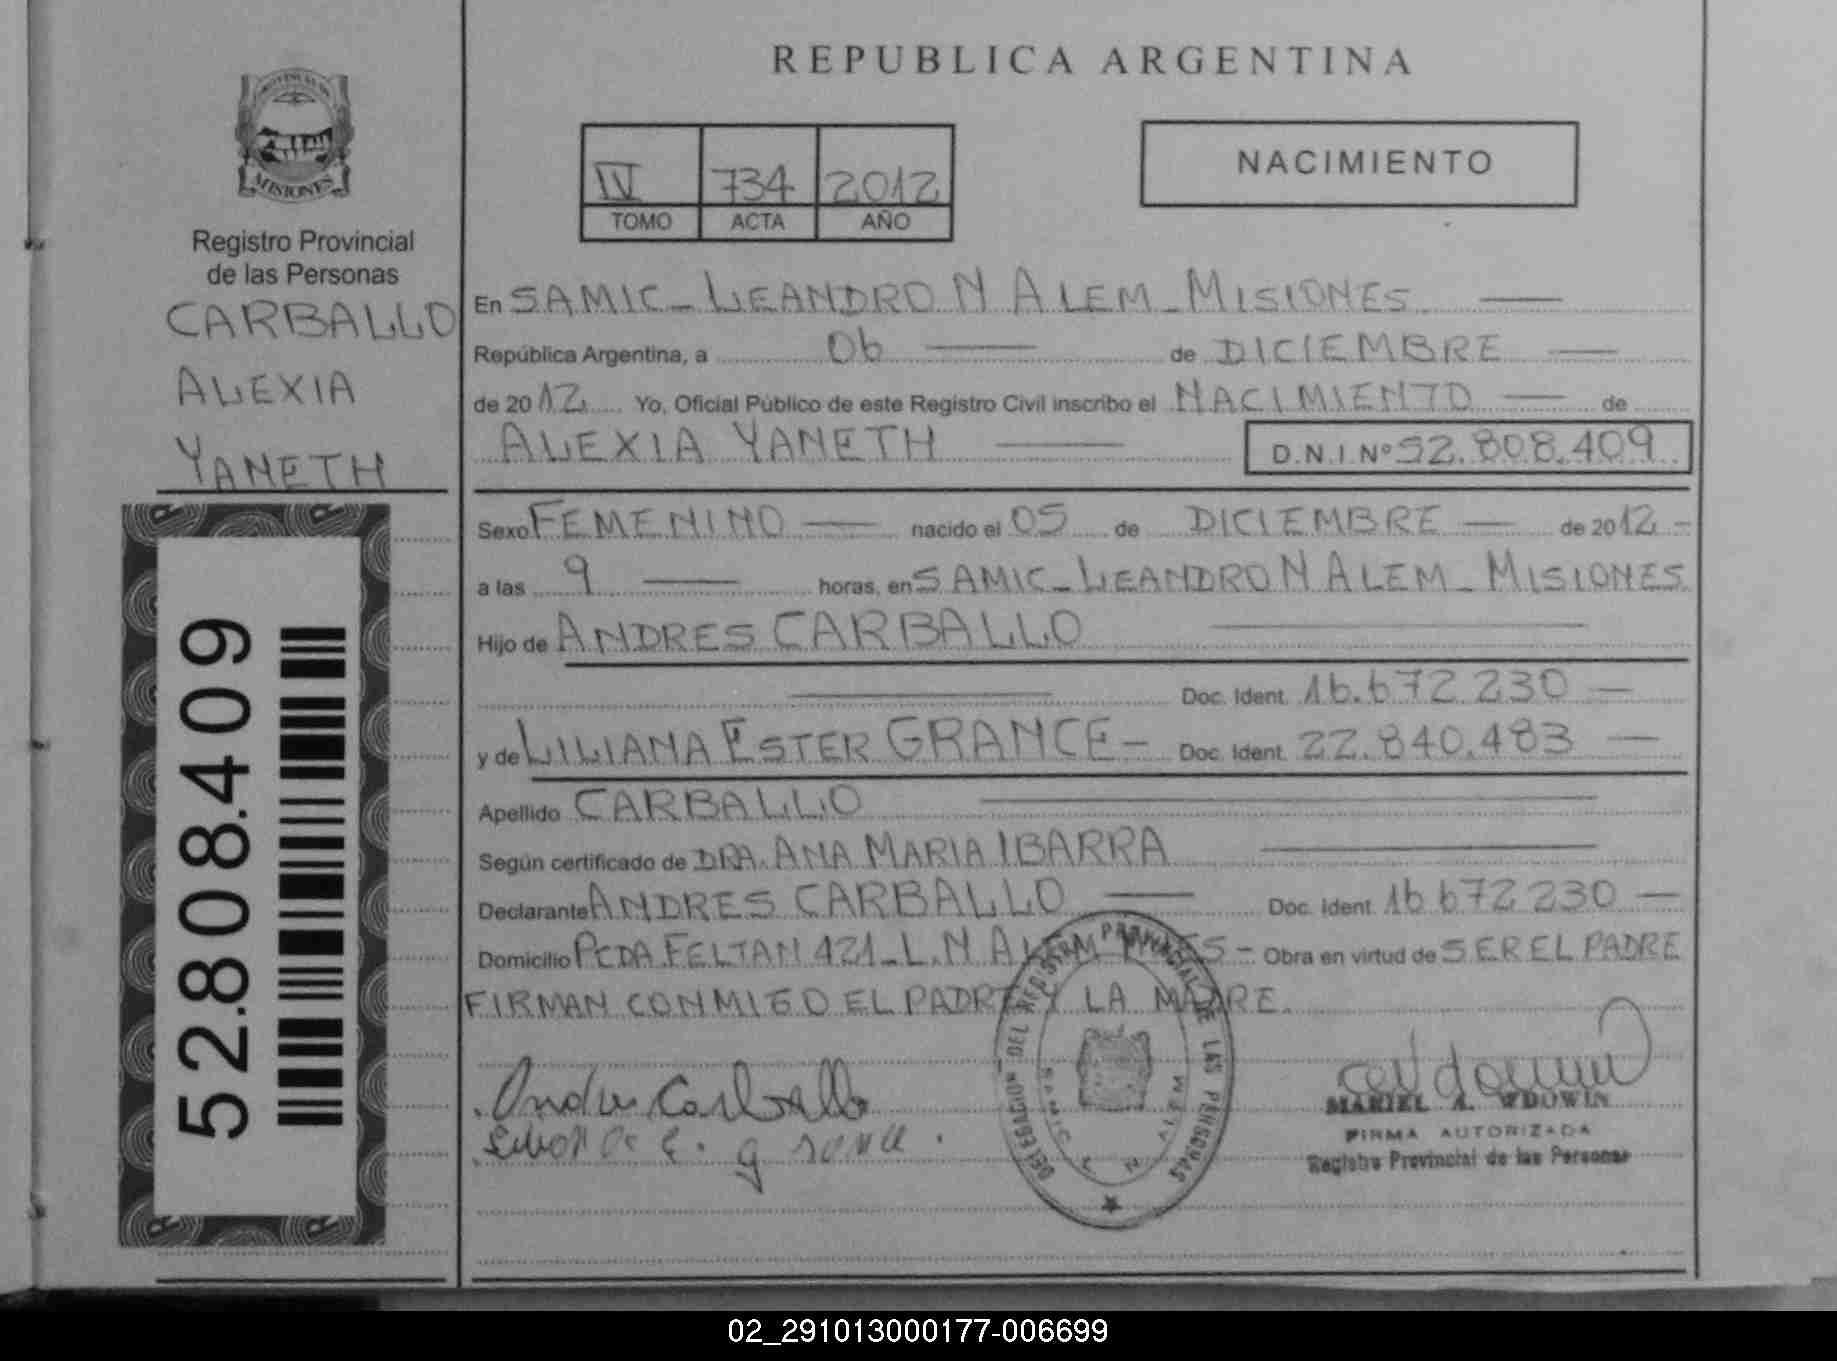 REPUBLICA ARGENTINA
MISIONES
Registro Provincial
de las Personas
CARBALLO
ALEXIA
YANETH
52.808.409
IV 734 2012
TOMO ACTA AÑO
NACIMIENTO
En SAMIC - LEANDRO N ALEM - MISIONES
República Argentina, a 06 de DICIEMBRE
de 2012 Yo, Oficial Público de este Registro Civil inscribo el NACIMIENTO de
ALEXIA YANETH D.N.I.Nº 52.808.409
Sexo FEMENINO nacido el 05 de DICIEMBRE de 2012 -
a las 9 horas, en SAMIC - LEANDRO N ALEM - MISIONES
Hijo de ANDRES CARBALLO
Doc. Ident. 16.672.230
y de LILIANA ESTER GRANCE - Doc. Ident. 22.840.483
Apellido CARBALLO
Según certificado de DRA. ANA MARIA IBARRA
Declarante ANDRES CARBALLO Doc. Ident. 16 672 230
Domicilio PCDA FELTAN 421 - L.N ALEM MNES - Obra en virtud de SER EL PADRE
FIRMAN CONMIGO EL PADRE Y LA MADRE.
Andres Carballo
DELEGACION DEL REGISTRO PROVINCIAL DE LAS PERSONAS
SAMIC L N ALEM
MARIEL A. WDOWIN
FIRMA AUTORIZADA
Registro Provincial de las Personas
02_291013000177-006699